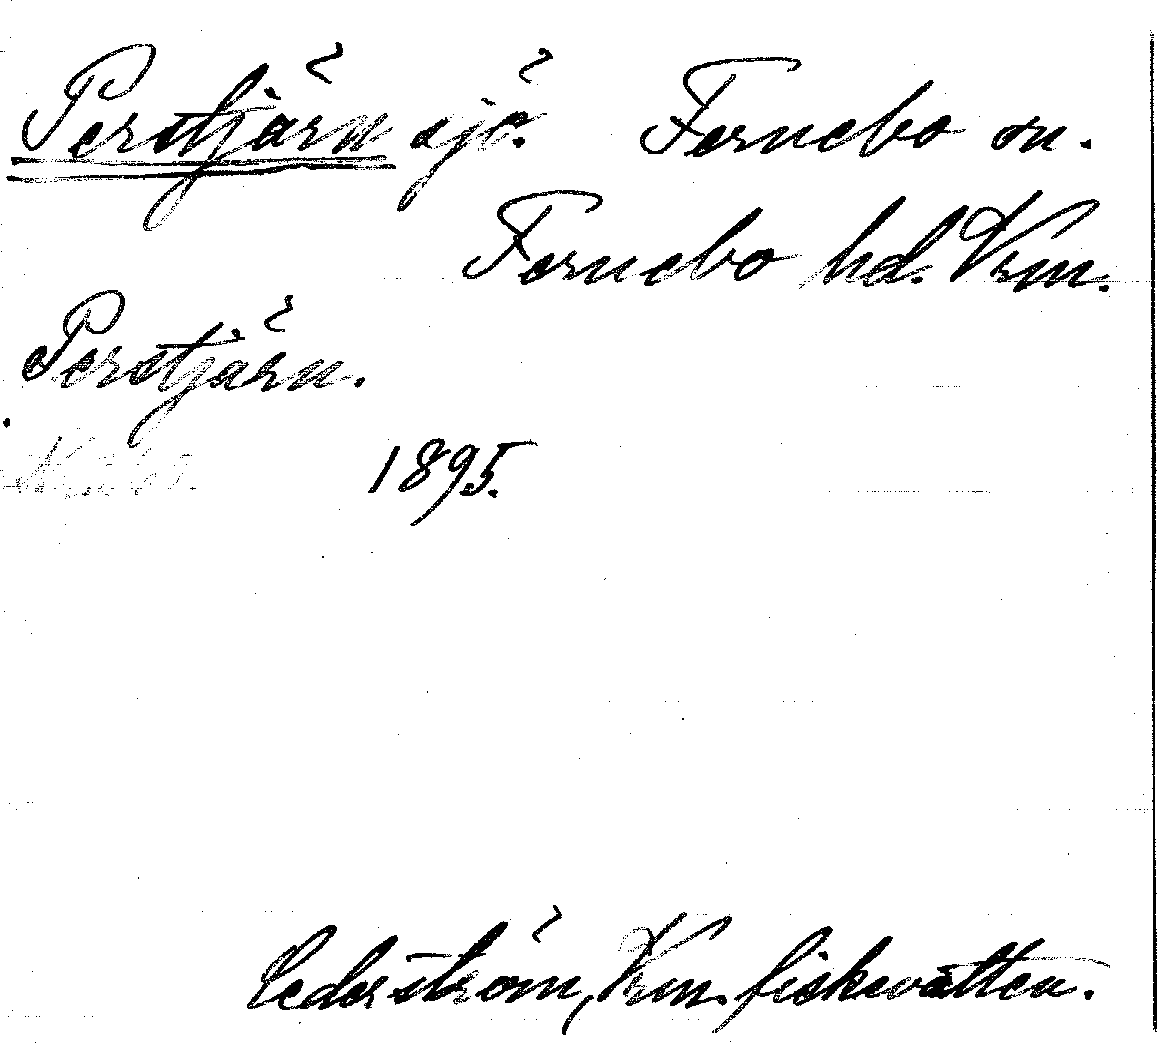 Perstjärn sjö. Fernebo sn.
Fernebo hd. Vrm.
Perstjärn.
1895.
Cederström, Vrm. fiskevatten.